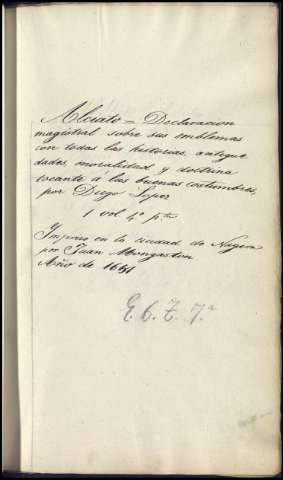 Alciato = Declaracion
magistral sobre sus emblemas
con todas las historias, antigue
dades, moralidad y doctrina
tocante á las buenas costumbres,
por Diego Lopez
1 vol 4º pta
Impreso en la ciudad de Nagera
por Juan Mongaston
Año de 1651
E. 6. T. 7.a